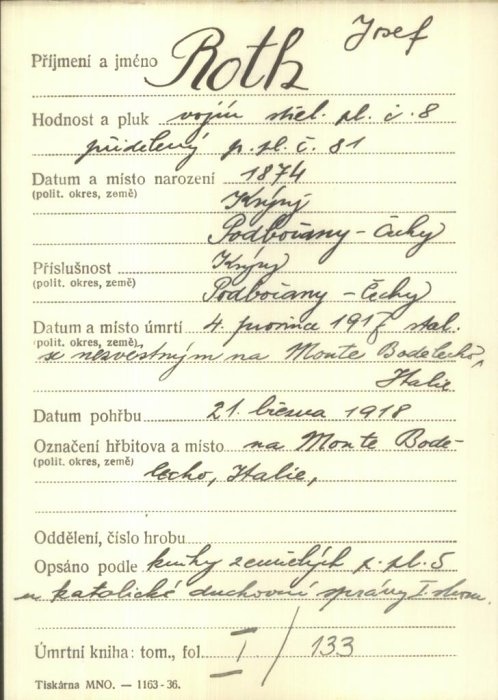 Josef
Příjmení a jméno Roth
Hodnost a pluk vojín střel. pl. č. 8
přidelený p. pl. č. 81
Datum a místo narození 1874
(polit. okres, země) Krýry
Podbořany - Čechy
Příslušnost Krýry
(polit. okres, země) Podbořany - Čechy
Datum a místo úmrtí 4. prosince 1917 stal.
(polit. okres, země) se nesvestným na Monte Bodelecho,
Italie
Datum pohřbu 21. března 1918
Označení hřbitova a místo na Monte Bode-
(polit. okres, země) lecho, Italie,
Oddělení, číslo hrobu
Opsáno podle knihy zemřelých p. pl. 5
katolické duchovní správy I.
Úmrtní kniha: tom., fol. I / 133
Tiskárna MNO. — 1163-36.